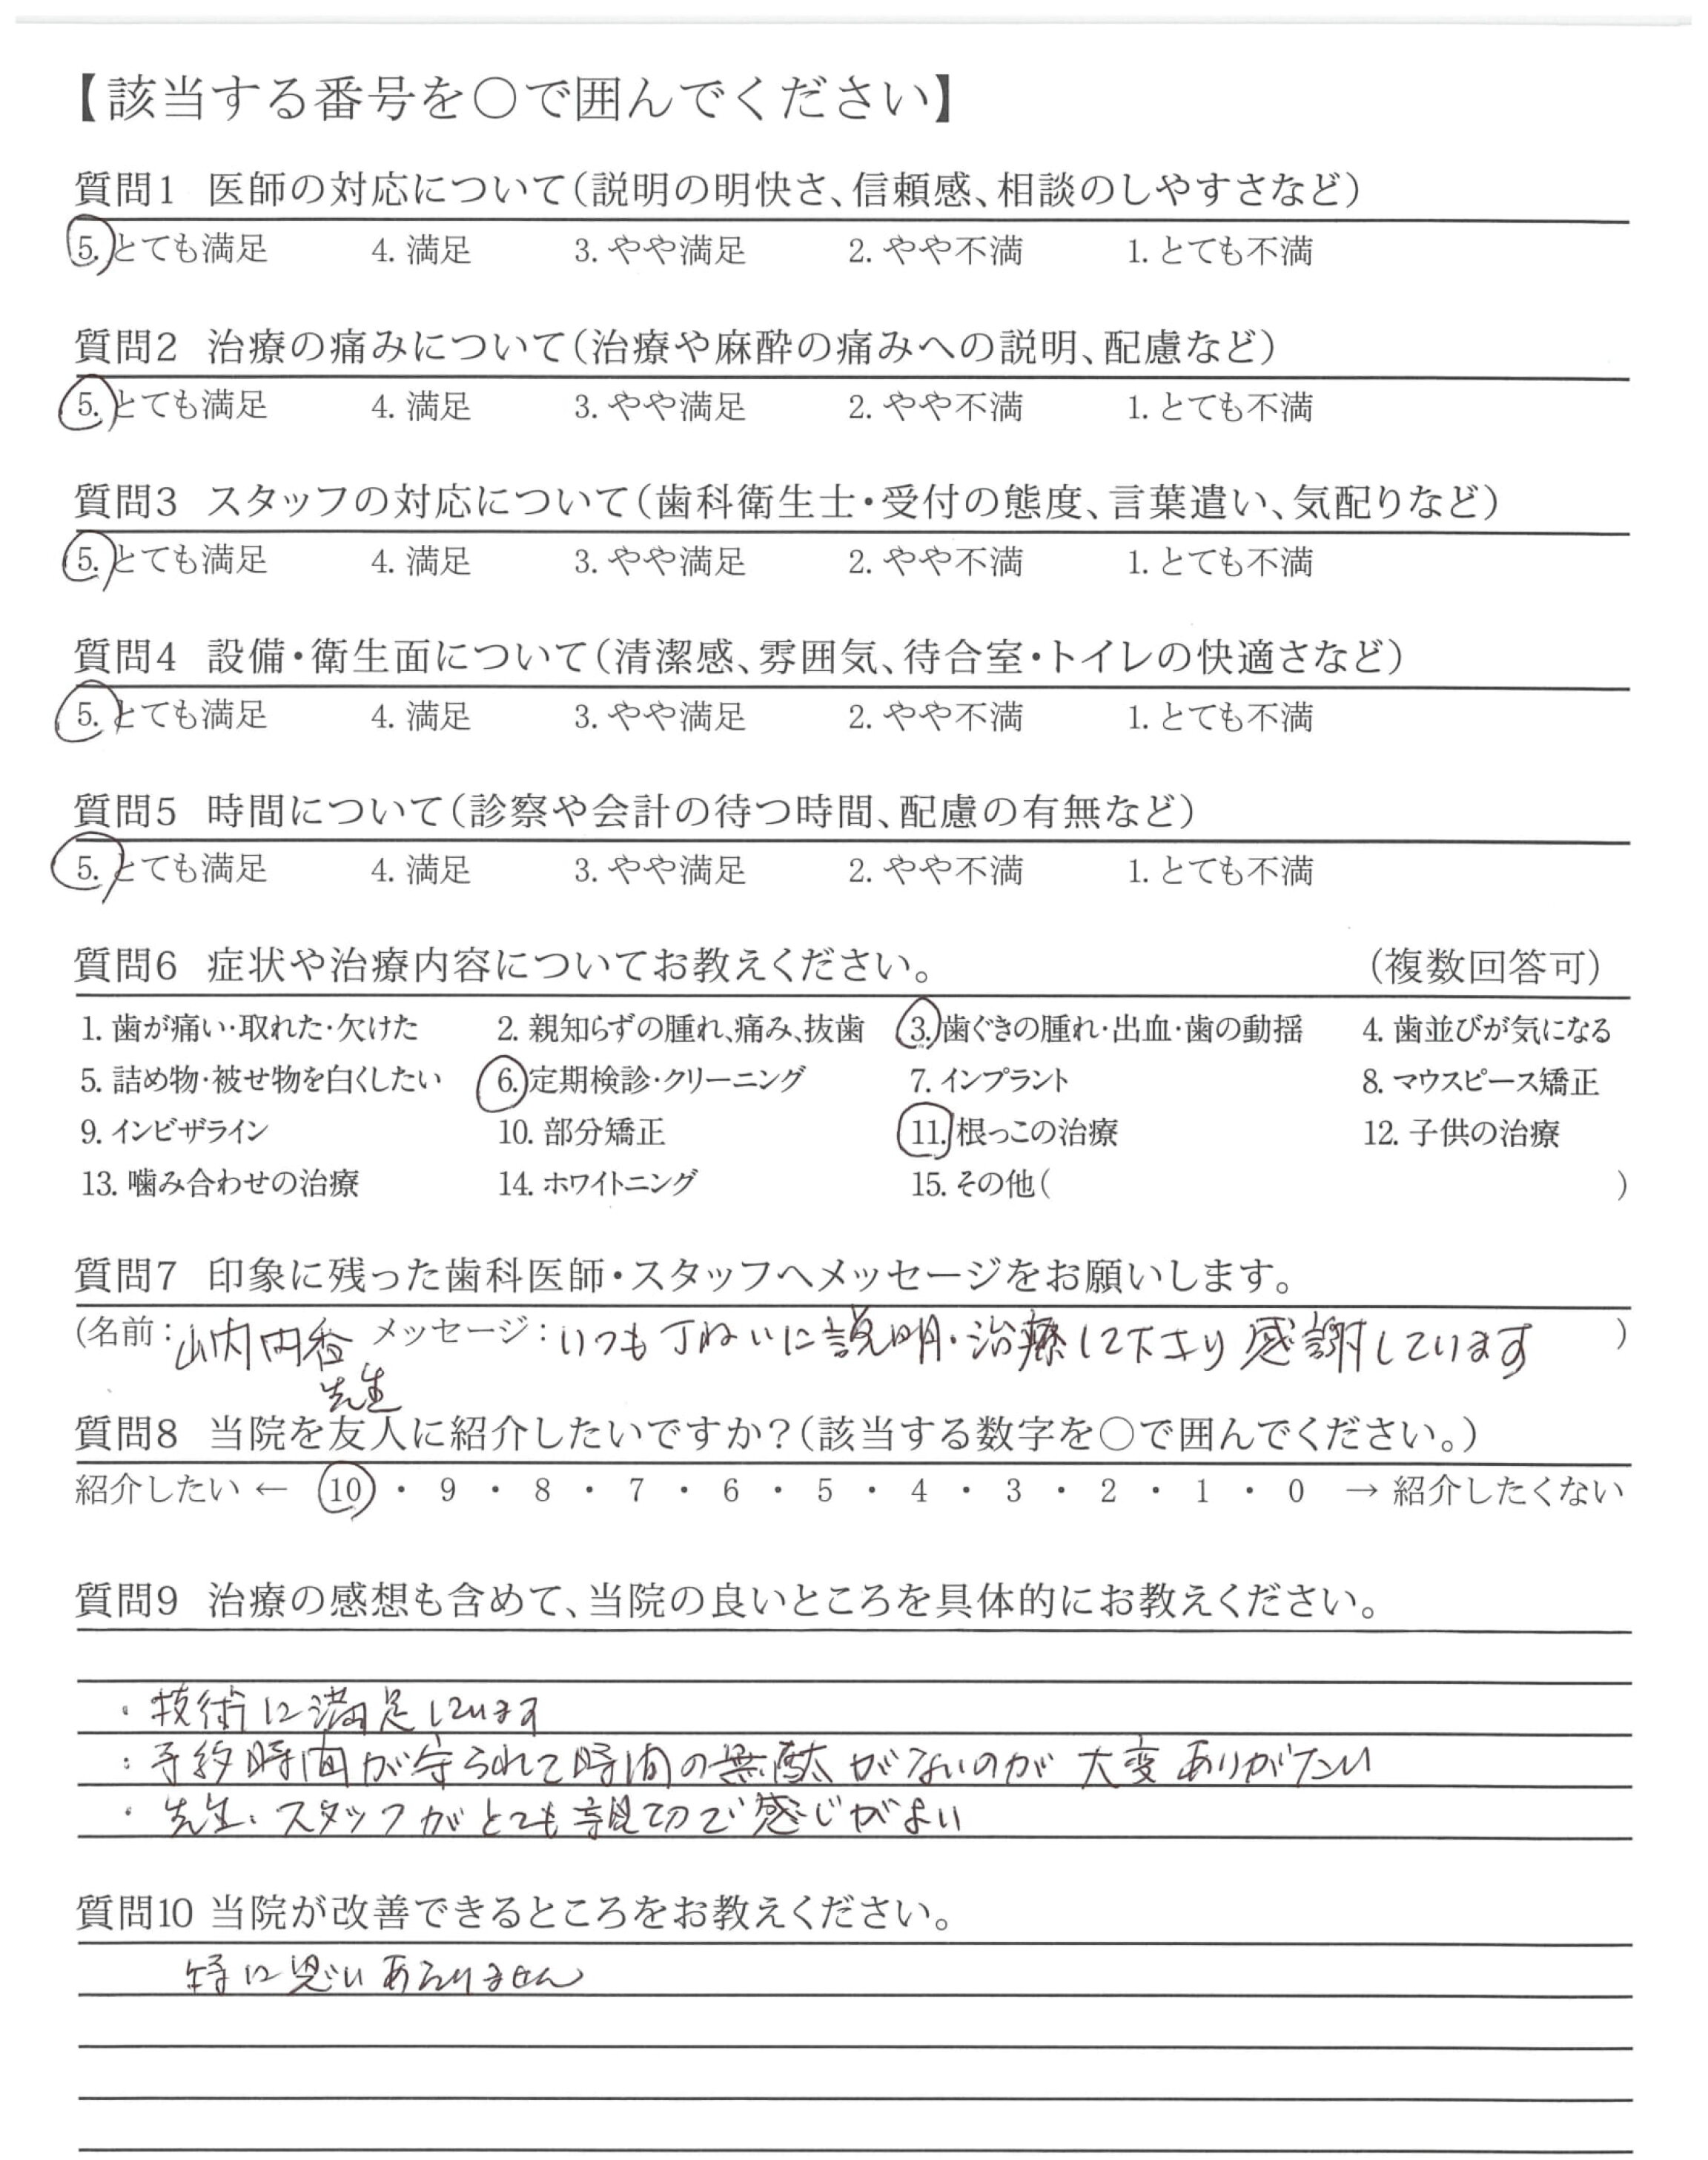 【該当する番号を〇で囲んでください】
質問1 医師の対応について(説明の明快さ、信頼感、相談のしやすさなど)
5. とても満足 4. 満足 3. やや満足 2. やや不満 1. とても不満
質問2 治療の痛みについて(治療や麻酔の痛みへの説明、配慮など)
5. とても満足 4. 満足 3. やや満足 2. やや不満 1. とても不満
質問3 スタッフの対応について(歯科衛生士・受付の態度、言葉遣い、気配りなど)
5. とても満足 4. 満足 3. やや満足 2. やや不満 1. とても不満
質問4 設備・衛生面について(清潔感、雰囲気、待合室・トイレの快適さなど)
5. とても満足 4. 満足 3. やや満足 2. やや不満 1. とても不満
質問5 時間について(診察や会計の待つ時間、配慮の有無など)
5. とても満足 4. 満足 3. やや満足 2. やや不満 1. とても不満
質問6 症状や治療内容についてお教えください。 (複数回答可)
1. 歯が痛い・取れた・欠けた 2. 親知らずの腫れ、痛み、抜歯 3. 歯ぐきの腫れ・出血・歯の動揺 4. 歯並びが気になる
5. 詰め物・被せ物を白くしたい 6. 定期検診・クリーニング 7. インプラント 8. マウスピース矯正
9. インビザライン 10. 部分矯正 11. 根っこの治療 12. 子供の治療
13. 噛み合わせの治療 14. ホワイトニング 15. その他( )
質問7 印象に残った歯科医師・スタッフへメッセージをお願いします。
(名前: 山内 メッセージ: いつも丁ねいに説明・治療して下さり感謝しています )
先生
質問8 当院を友人に紹介したいですか?(該当する数字を〇で囲んでください。)
紹介したい ← 10 ・ 9 ・ 8 ・ 7 ・ 6 ・ 5 ・ 4 ・ 3 ・ 2 ・ 1 ・ 0 → 紹介したくない
質問9 治療の感想も含めて、当院の良いところを具体的にお教えください。
・技術に満足しています
・予約時間が守られて時間の無駄がないのが大変ありがたい
・先生・スタッフがとても親切で感じがよい
質問10 当院が改善できるところをお教えください。
特に思いあたりません